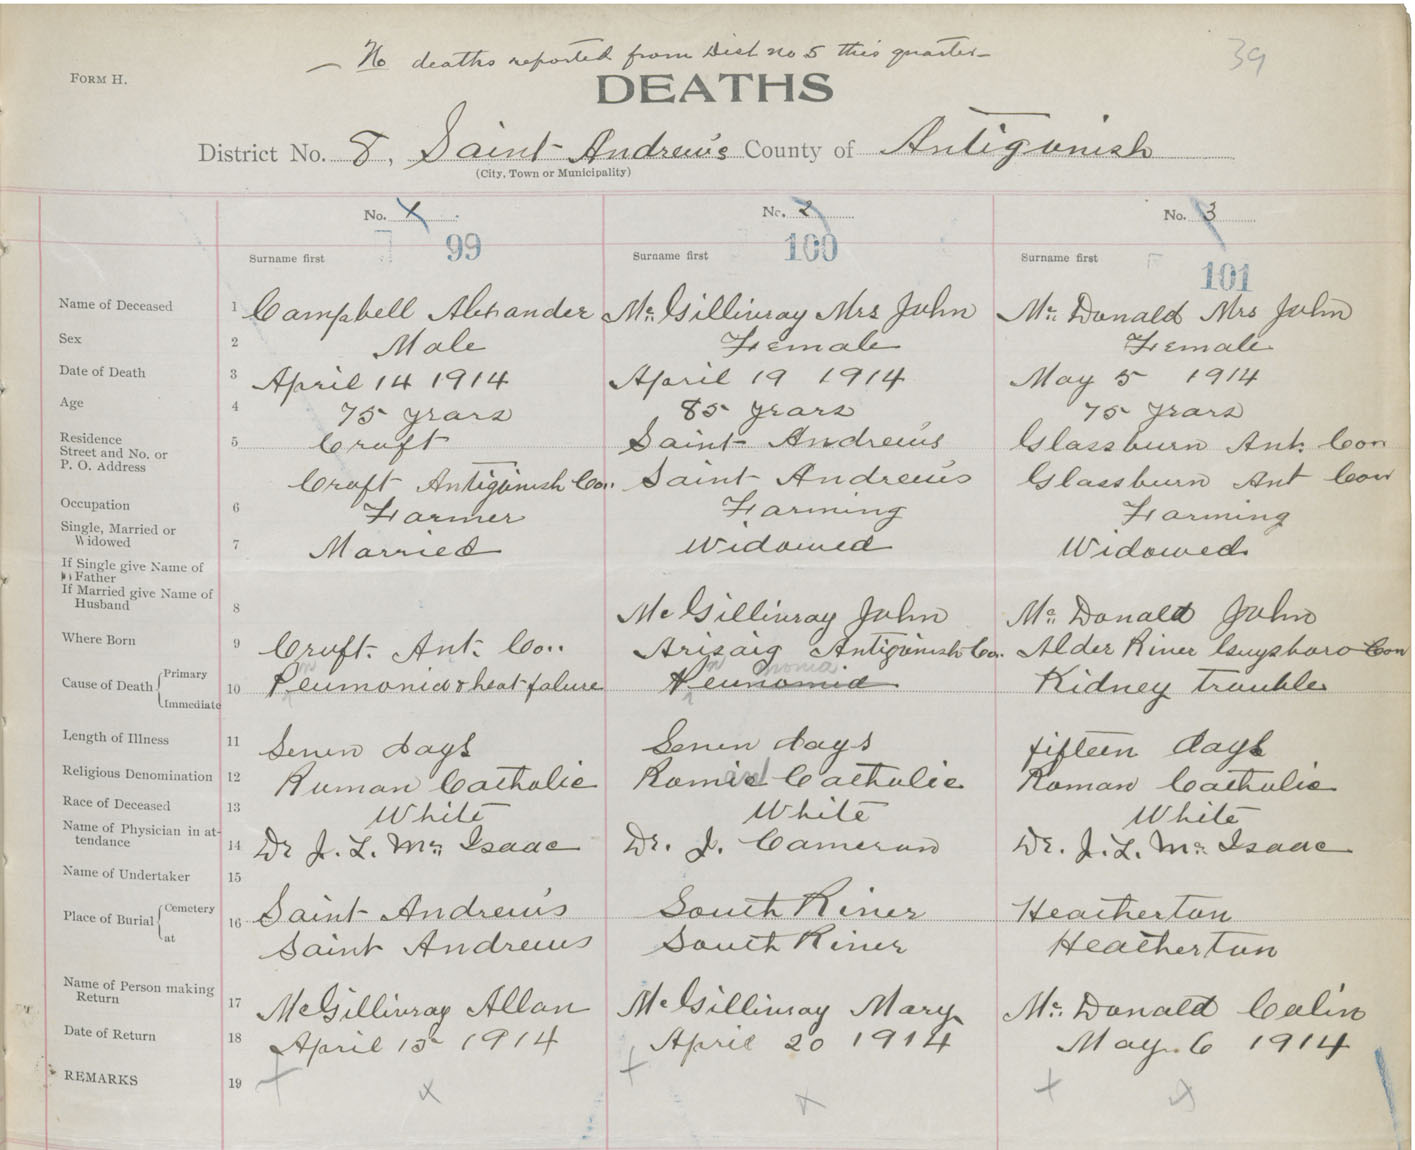 No deaths reported from Dist no 5 this quarter
39
FORM H.
DEATHS
District No. 8, Saint Andrew's County of Antigonish
(City, Town or Municipality)
No. 1 No. 2 No. 3
99 100 101
Surname first Surname first Surname first
Name of Deceased 1 Campbell Alexander Mc Gillivray Mrs John Mc Donald Mrs John
Sex 2 Male Female Female
Date of Death 3 April 14 1914 April 19 1914 May 5 1914
Age 4 75 years 85 years 75 years
Residence 5 Croft Saint Andrew's Glassburn Ant. Con
Street and No. or
P. O. Address Croft Antigonish Co. Saint Andrew's Glassburn Ant Con
Occupation 6 Farmer Farming Farming
Single, Married or
Widowed 7 Married Widowed Widowed
If Single give Name of
Father
If Married give Name of
Husband 8 Mc Gillivray John Mc Donald John
Where Born 9 Croft. Ant. Co.. Arisaig Antigonish Co. Alder River Guysboro Con
Cause of Death Primary Immediate 10 Pneumonia & heat falure Pneumonia Kidney trouble
Length of Illness 11 Seven days Seven days fifteen days
Religious Denomination 12 Roman Catholic Roman Catholic Roman Catholic
Race of Deceased 13 White White White
Name of Physician in at-
tendance 14 Dr J. L. Mc Isaac Dr. J. Cameron Dr. J. L. Mc Isaac
Name of Undertaker 15
Place of Burial Cemetery 16 Saint Andrew's South River Heatherton
at Saint Andrews South River Heatherton
Name of Person making
Return 17 McGillivray Allan McGillivray Mary Mc Donald Colin
Date of Return 18 April 15 1914 April 20 1914 May. 6 1914
REMARKS 19